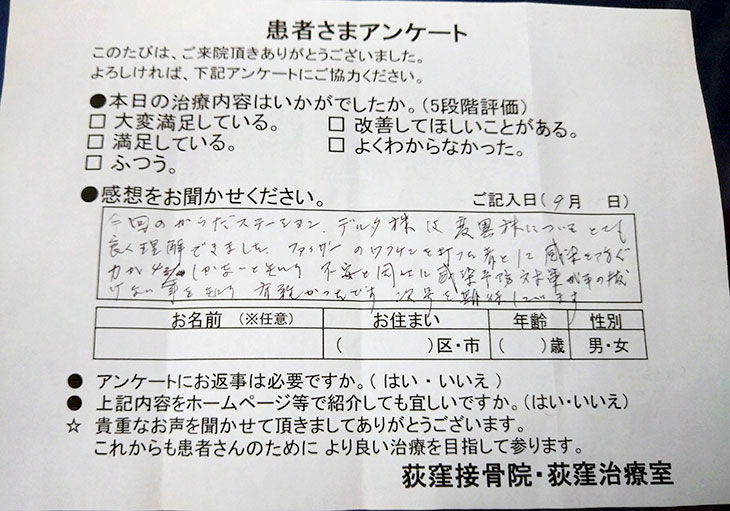 患者さまアンケート
このたびは、ご来院頂きありがとうございました。
よろしければ、下記アンケートにご協力ください。
●本日の治療内容はいかがでしたか。(5段階評価)
□ 大変満足している。 □ 改善してほしいことがある。
□ 満足している。 □ よくわからなかった。
□ ふつう。
●感想をお聞かせください。 ご記入日(9月 日)
今回のからだステーション、デルタ株 変異株についてとても
良く理解できました。ファイザーのワクチンを打った者として感染を防ぐ
力が しかないと知り 不安と同時に感染予防対策が手の抜
けない事を知り 有難かったです 次号も期待しています
お名前 (※任意) お住まい 年齢 性別
( )区・市 ( )歳 男・女
● アンケートにお返事は必要ですか。( はい ・ いいえ )
● 上記内容をホームページ等で紹介しても宜しいですか。(はい・いいえ)
☆ 貴重なお声を聞かせて頂きましてありがとうございます。
これからも患者さんのために より良い治療を目指して参ります。
荻窪接骨院・荻窪治療室